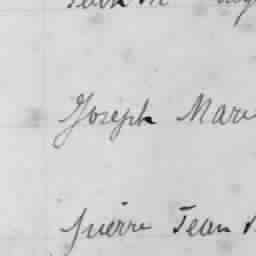 Joseph Mare
Pierre Jean